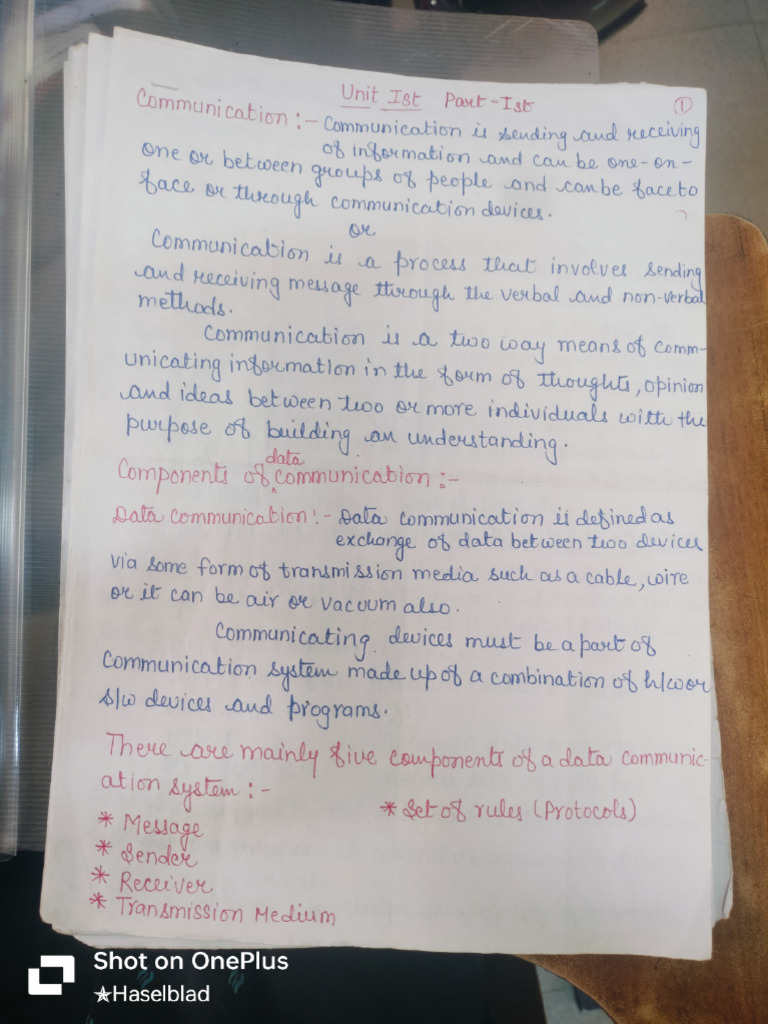 Unit Ist Part-Ist
①
Communication :- Communication is sending and receiving
of information and can be one-on-
one or between groups of people and can be face to
face or through communication devices.
or
Communication is a process that involves sending
and receiving message through the verbal and non-verbal
methods.
Communication is a two way means of comm-
unicating information in the form of thoughts, opinion
and ideas between two or more individuals with the
purpose of building an understanding.
Components of data communication :-
Data communication :- Data communication is defined as
exchange of data between two devices
via some form of transmission media such as a cable, wire
or it can be air or vacuum also.
Communicating devices must be a part of
communication system made up of a combination of h/w or
s/w devices and programs.
There are mainly five components of a data communic-
ation system :-
* Message
* Sender
* Receiver
* Transmission Medium
* Set of rules (Protocols)
Shot on OnePlus
★Haselblad